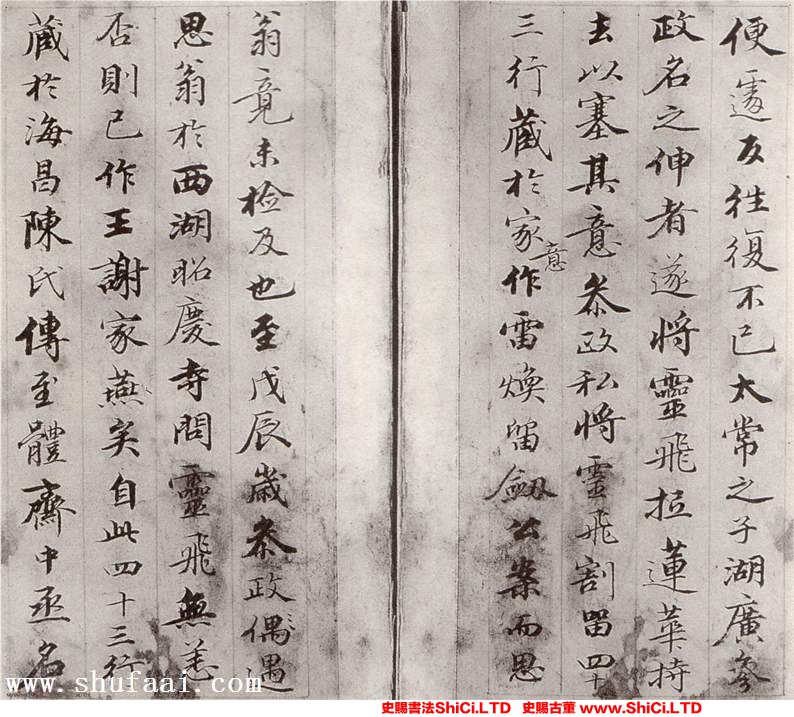 便遽反往復不已太常之子湖廣參
政名之伸者遂將靈飛抵蓮華持
去以塞其意參政私將靈飛割留四十
三行藏於家意作雷煥留劔公案而思
翁竟未檢及也至戊辰歲參政偶遇
思翁於西湖昭慶寺問靈飛無恙
否則已作王謝家燕矣自此四十三行
藏於海昌陳氏傳至體齋中丞名
www.shufaai.com
史賜書法ShiCi.LTD 史賜古董 www.ShiCi.LTD